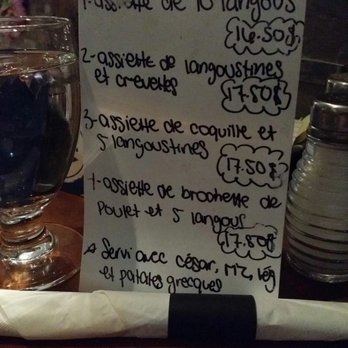 1-assiette de 10 langous
14.50$
2-assiette de langoustines
et crevettes
17.50$
3-assiette de coquille et
5 langoustines
17.50$
1-assiette de brochette de
Poulet et 5 langous
17.50$
Servi avec césar, riz, lég
et patates grecques